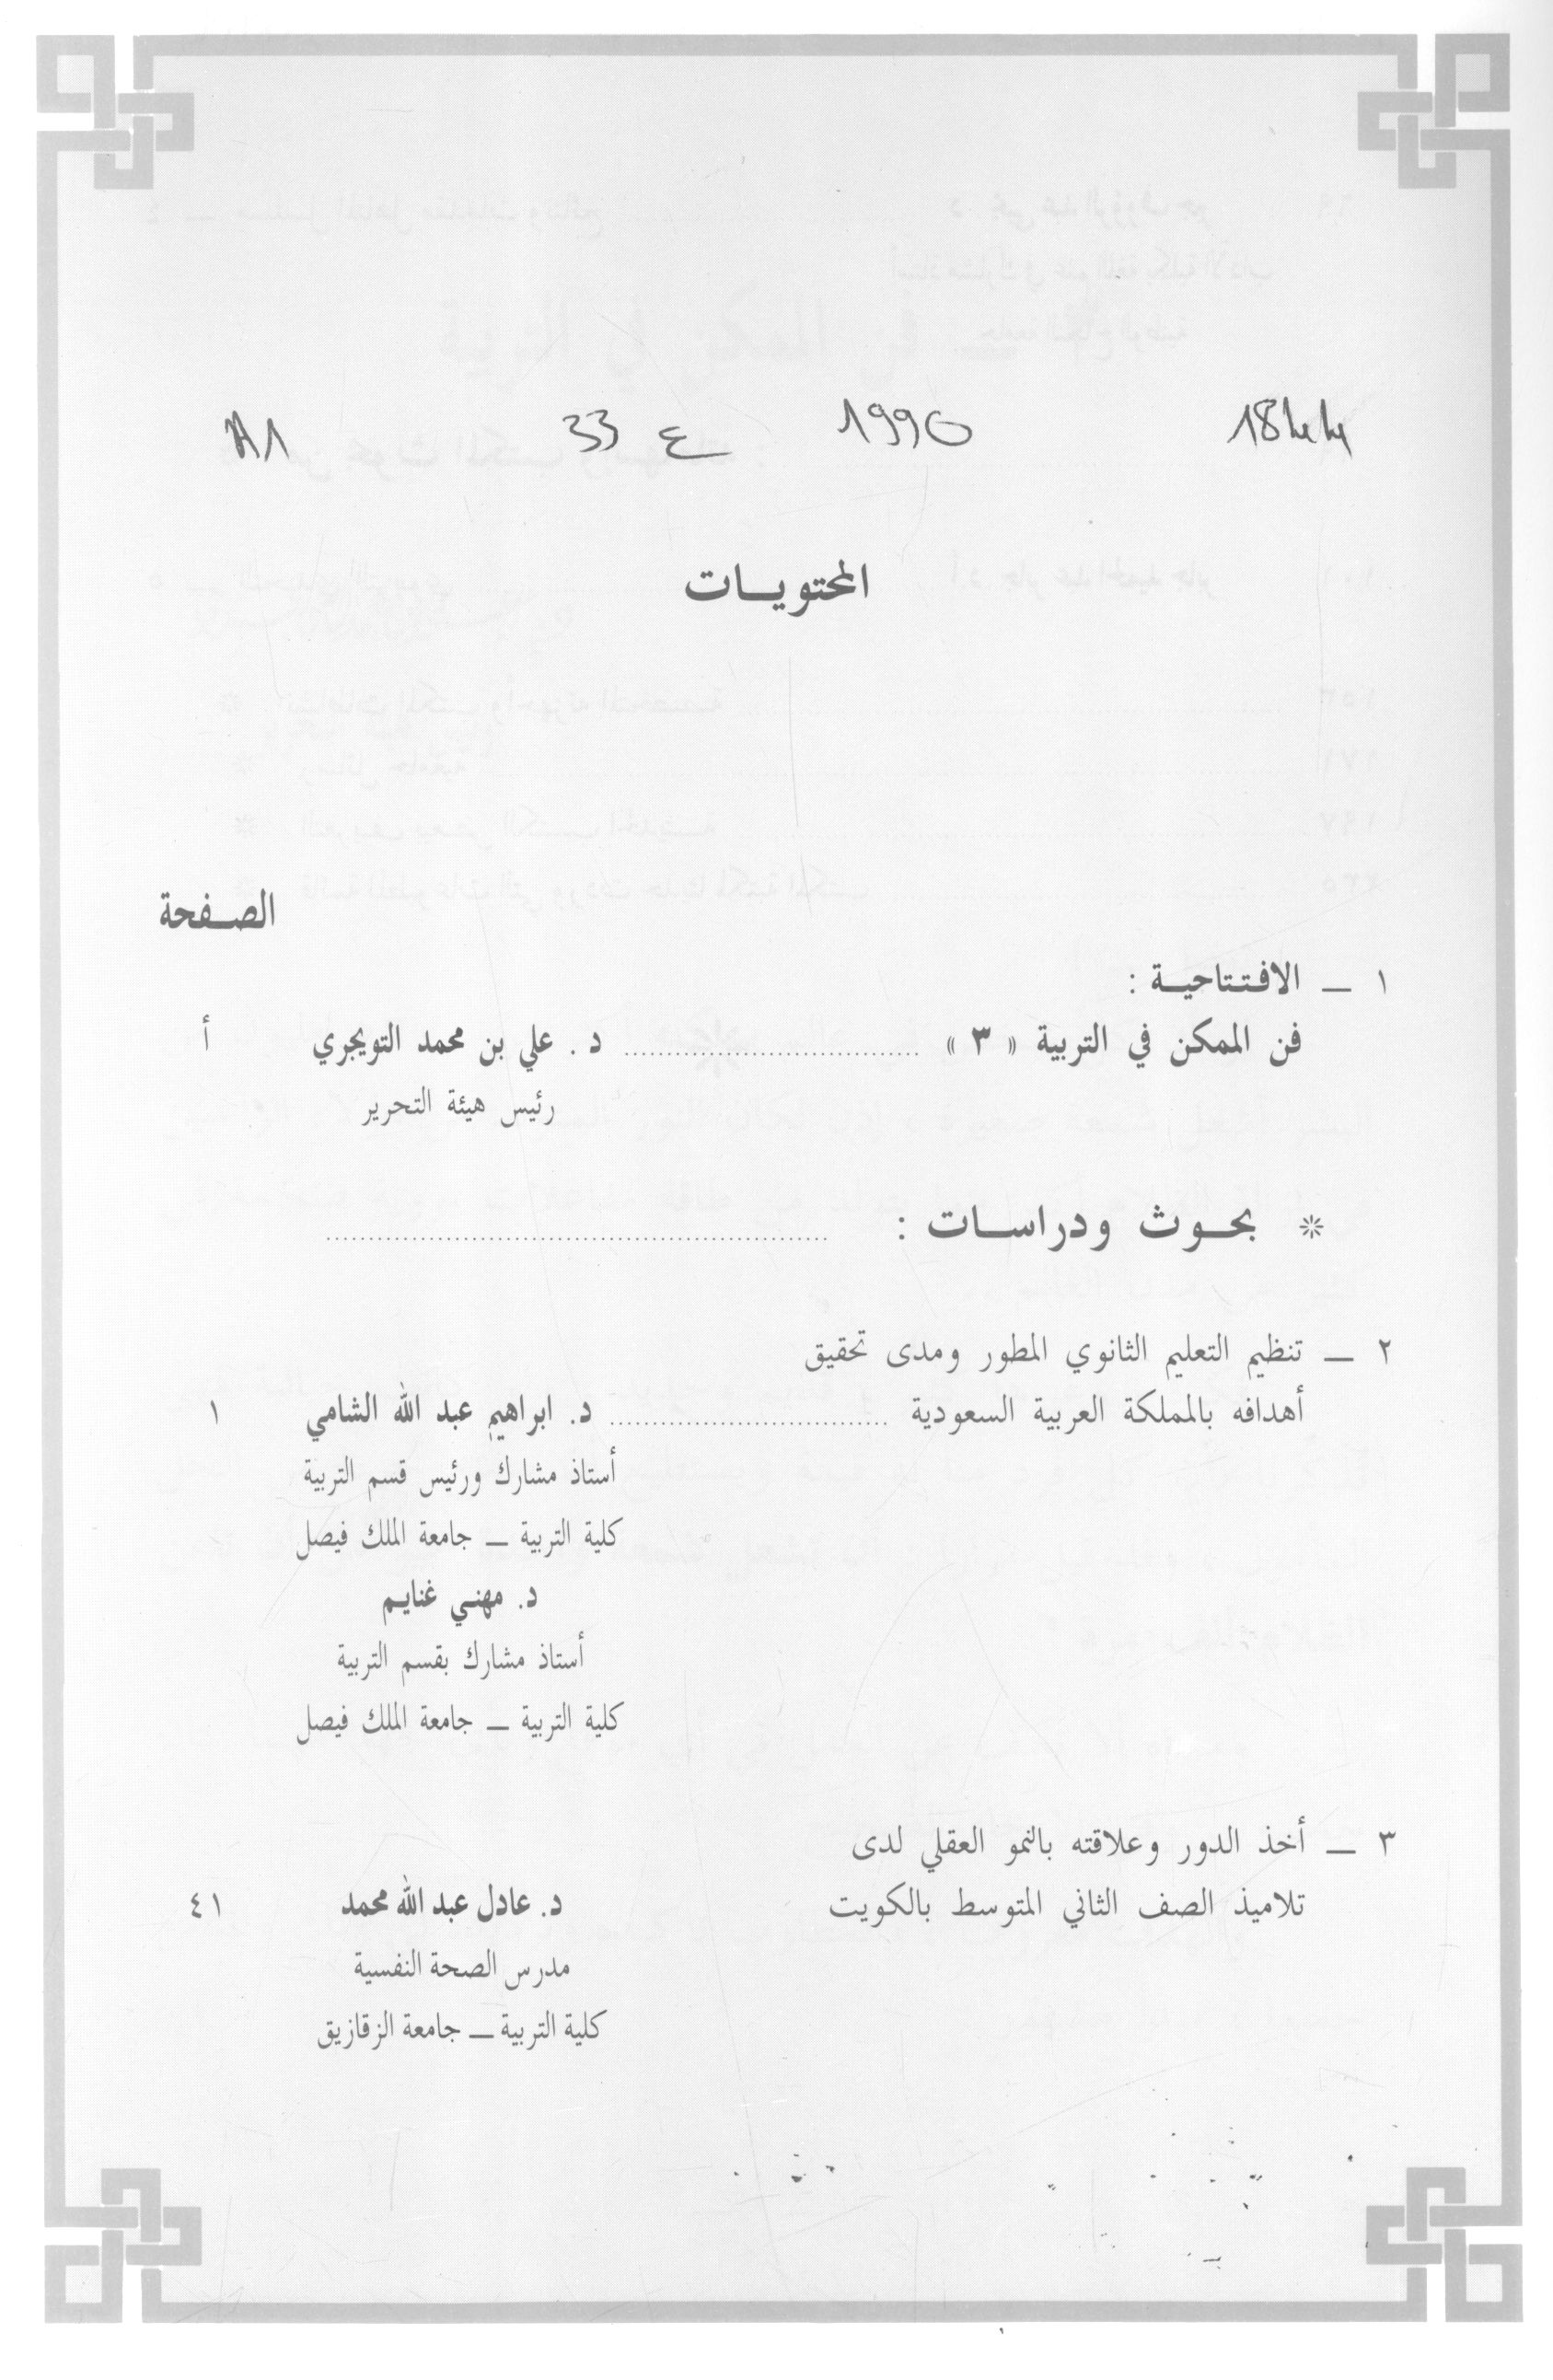 1990
ع 33
المحتويات
الصفحة
١ ــ الافتتاحية :
فن الممكن في التربية « ٣ » ........ د . علي بن محمد التويجري أ
رئيس هيئة التحرير
* بحوث ودراسات : ........
٢ ــ تنظيم التعليم الثانوي المطور ومدى تحقيق
أهدافه بالمملكة العربية السعودية ........ د. ابراهيم عبد الله الشامي ١
أستاذ مشارك ورئيس قسم التربية
كلية التربية ــ جامعة الملك فيصل
د. مهني غنايم
أستاذ مشارك بقسم التربية
كلية التربية ــ جامعة الملك فيصل
٣ ــ أخذ الدور وعلاقته بالنمو العقلي لدى
تلاميذ الصف الثاني المتوسط بالكويت د. عادل عبد الله محمد ٤١
مدرس الصحة النفسية
كلية التربية ــ جامعة الزقازيق